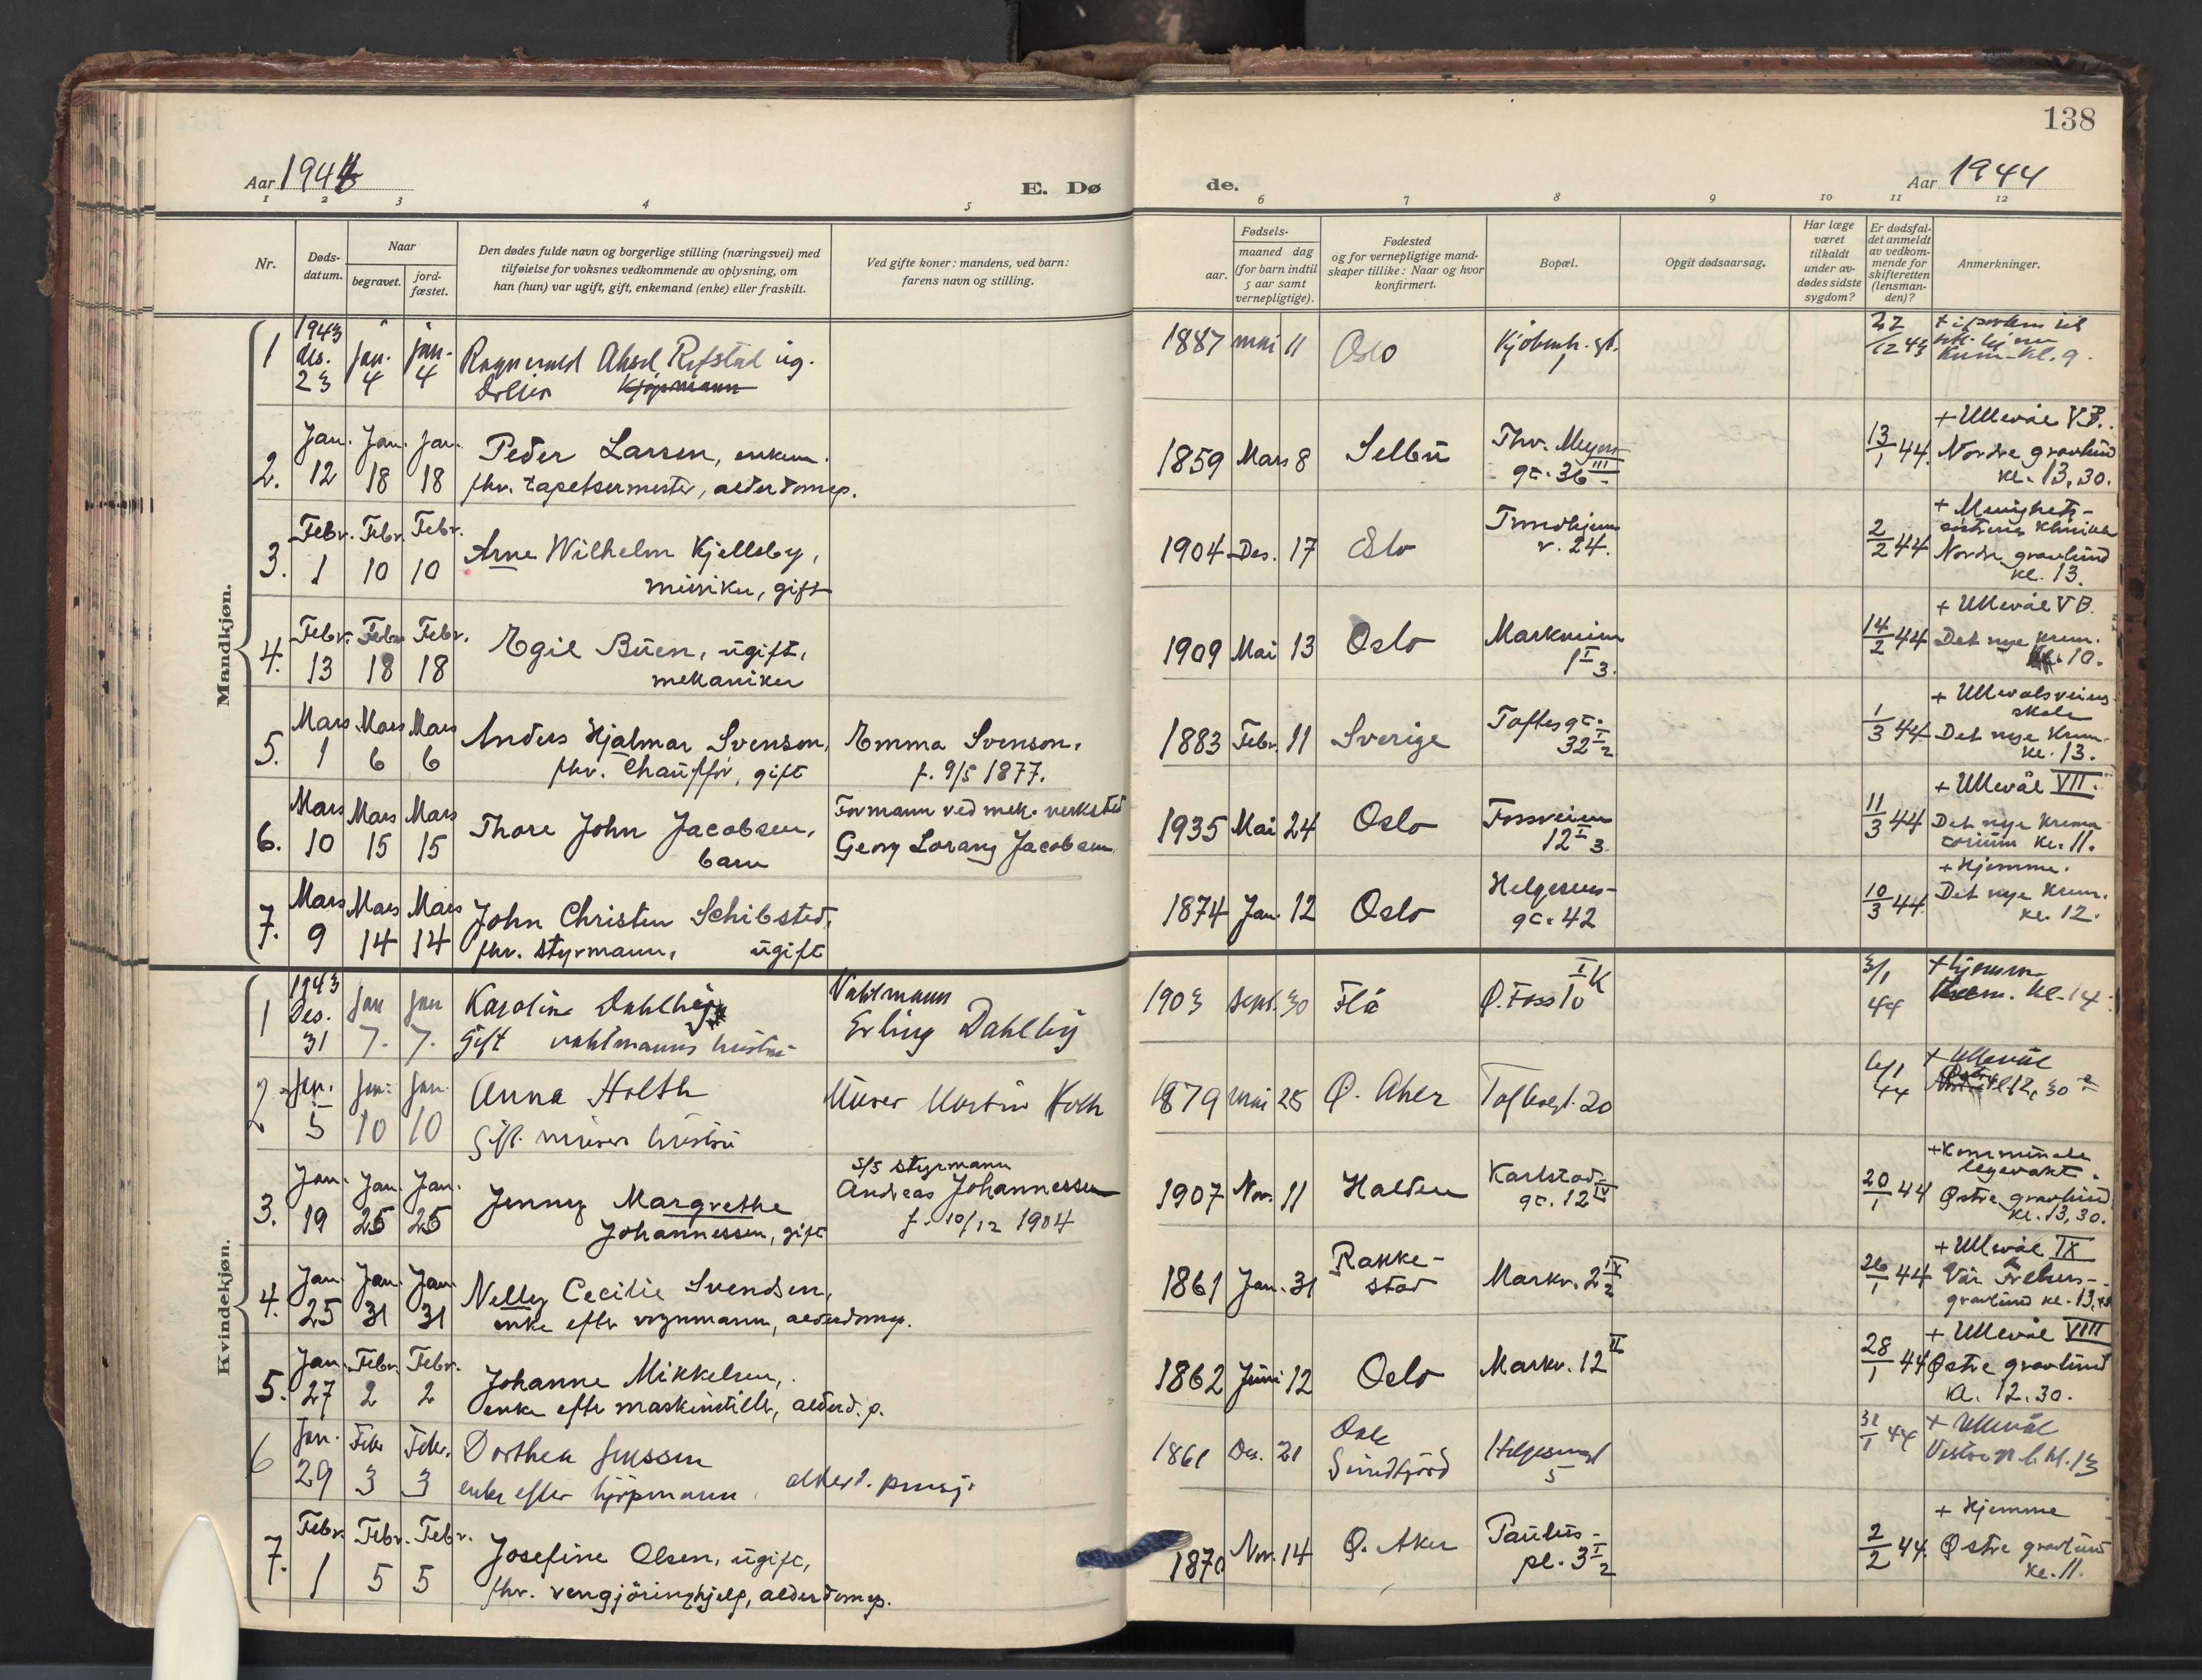 138
Aar 1944
E. Dø
de.
Aar 1944
1 2 3 4 5 6 7 8 9 10 11 12
Nr.
Døds-
datum.
Naar
begravet.
jord-
fæstet.
Den dødes fulde navn og borgerlige stilling (næringsvei) med
tilføielse for voksnes vedkommende av oplysning, om
han (hun) var ugift, gift, enkemand (enke) eller fraskilt.
Ved gifte koner: mandens, ved barn:
farens navn og stilling.
Fødsels-
aar.
maaned dag
(for barn indtil
5 aar samt
vernepligtige).
Fødested
og for vernepligtige mand-
skaper tillike: Naar og hvor
konfirmert.
Bopæl.
Opgit dødsaarsag.
Har læge
været
tilkaldt
under av-
dødes sidste
sygdom?
Er dødsfal-
det anmeldt
av vedkom-
mende for
skifteretten
(lensman-
den)?
Anmerkninger.
Mandkjøn.
1
1943
des. jan. jan.
23 4 4
Ragnvald Aksel Refstad ug.
Kjøpmann
1887 mai 11
Oslo
Kjøbenh. gt.
1
22/12 43
kl. 9.
2.
Jan. Jan. Jan.
12 18 18
Peder Larsen, enkem.
fhv. tapetsermester, alderdomsp.
1859 Mars 8
Selbu
Thv. Meyers
gt. 36 III
13/1 44.
+ Ullevål VB.
Nordre gravlund
kl. 13,30.
3.
Febr. Febr. Febr.
1 10 10
Arne Wilhelm Kjellsby,
musiker, gift
1904 Des. 17
Oslo
Trondhjems
v. 24.
2/2 44
+ Menighets-
søstrenes klinikk
Nordre gravlund
kl. 13.
4.
Febr. Febr. Febr.
13 18 18
Egil Buen, ugift,
mekaniker
1909 Mai 13
Oslo
Markveien
1 I 3.
14/2 44
+ Ullevål VB.
Det nye krem.
kl. 10.
5.
Mars Mars Mars
1 6 6
Anders Hjalmar Svenson,
fhv. Chauffør, gift
Emma Svenson,
f. 9/5 1877.
1883 Febr. 11
Sverige
Toftesgt.
32 I 2
1/3 44
+ Ullevålsveiens
skole
Det nye krem.
kl. 13.
6.
Mars Mars Mars
10 15 15
Thore John Jacobsen,
barn
Formann ved mek. verksted
Georg Lorang Jacobsen
1935 Mai 24
Oslo
Fossveien
12 I 3
11/3 44
+ Ullevål VII.
Det nye krema-
torium kl. 11.
7.
Mars Mars Mars
9 14 14
John Christen Schibsted,
fhv. styrmann, ugift
1874 Jan. 12
Oslo
Helgesens-
gt. 42
10/3 44
+ Hjemme.
Det nye krem.
kl. 12.
Kvindekjøn.
1
1943
Des. jan jan
31 7. 7.
Karoline Dahlby
gift vaktmanns hustru
Vaktmann
Erling Dahlby
1903 sept. 30
Flå
Ø. Foss 10 I K
3/1
44
+ hjemme
Krem. kl. 14.
2
jan. jan. jan.
5 10 10
Anna Holth
gift. murers hustru
Murer Martin Holth
1879 mai 28
Ø. Aker
Toftesgt. 20
6/1
44
+ Ullevål
kl. 12,30
3.
Jan. Jan. Jan.
19 25 25
Jenny Margrethe
Johannessen, gift
s/s styrmann
Andreas Johannessen
f. 10/12 1904
1907 Nov. 11
Halden
Karlstad-
gt. 12 IV
20/1 44
+ Kommunale
legevakt.
Østre gravlund
kl. 13,30.
4.
Jan. Jan. Jan.
25 31 31
Nelly Cecilie Svendsen,
enke efter vognmann, alderdomsp.
1861 Jan. 31
Rakke-
stad
Markv. 2 IV 2
26/1 44
+ Ullevål IX
Vår Frelsers-
gravlund kl. 13,45
5.
Jan. Febr. Febr.
27 2 2
Johanne Mikkelsen,
enke efter maskinstille, alderd. p.
1862 Juni 12
Oslo
Markv. 12 II
28/1 44
+ Ullevål VIII
Østre gravlund
kl. 12.30.
6
Jan. Febr. Febr.
29 3 3
Dorthea Jenssen
enke efter kjøpmann. alderd. pensj.
1861 Des. 21
Sundfjord
Helgesensgt
5
31/1 44
+ Ullevål
Vestre gr.l. kl. 13
7.
Febr. Febr. Febr.
1 5 5
Josefine Olsen, ugift,
fhv. rengjøringshjelp, alderdomsp.
1870 Nov. 14
Ø. Aker
Paulus-
pl. 3 I 2
2/2 44.
+ Hjemme
Østre gravlund
kl. 11.